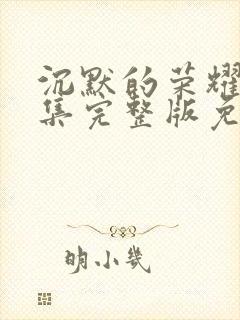 沉默的荣耀
集完整版免
明小几